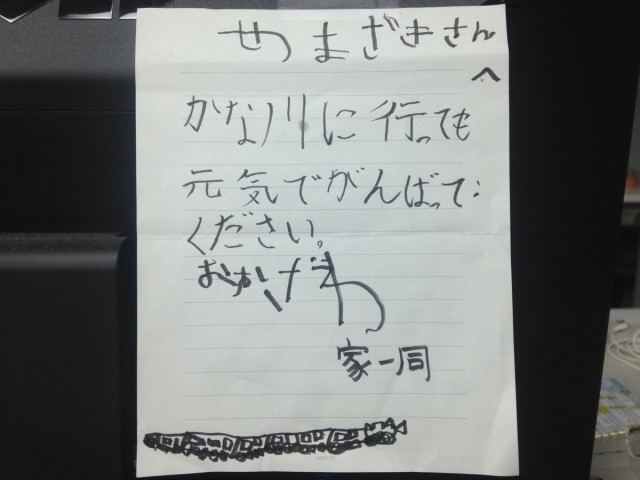 やまざきさん
へ
かな川に行っても
元気でがんばって
ください。
家一同